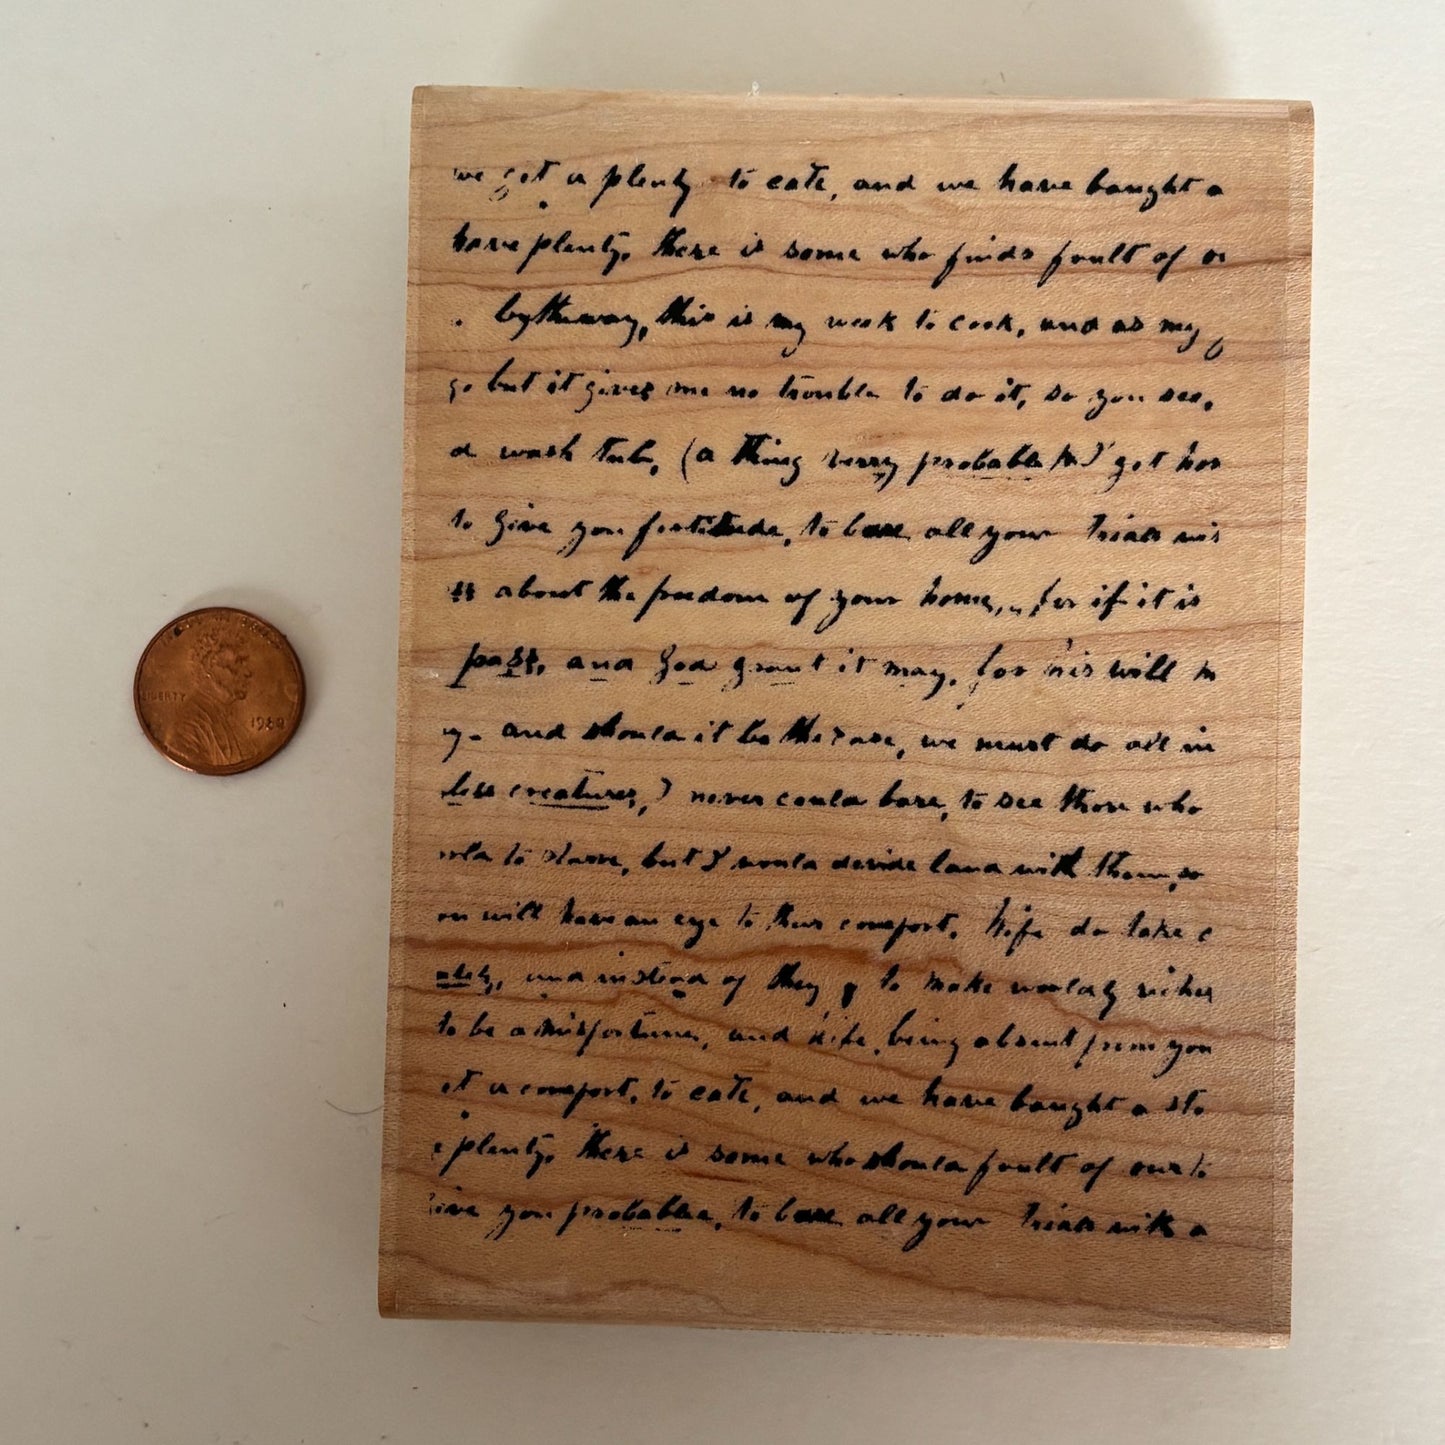 we get a plenty to eate, and we have bought a
have plenty. there is some who finds fault of or
by the way, this is my week to cook, and as my
go but it gives me no trouble to do it, so you see,
d wash tub, (a thing verry probable) get hom
to give you fortitude, to bare all your trials wit
about the freedom of your home, for if it is
pass, and God grant it may, for his will
y. and should it be the case, we must do all in
less creatures, I never could bare, to see those who
to starve, but I would devide land with them, so
ou will have an eye to their comfort. Wife do take c
and instead of they to make worldly riches
to be a misfortune, and wife, being absent from you
et a comfort, to eate, and we have bought a sto
e plenty. there is some who should fault of our to
give you probable, to bare all your trials with a
LIBERTY
1989